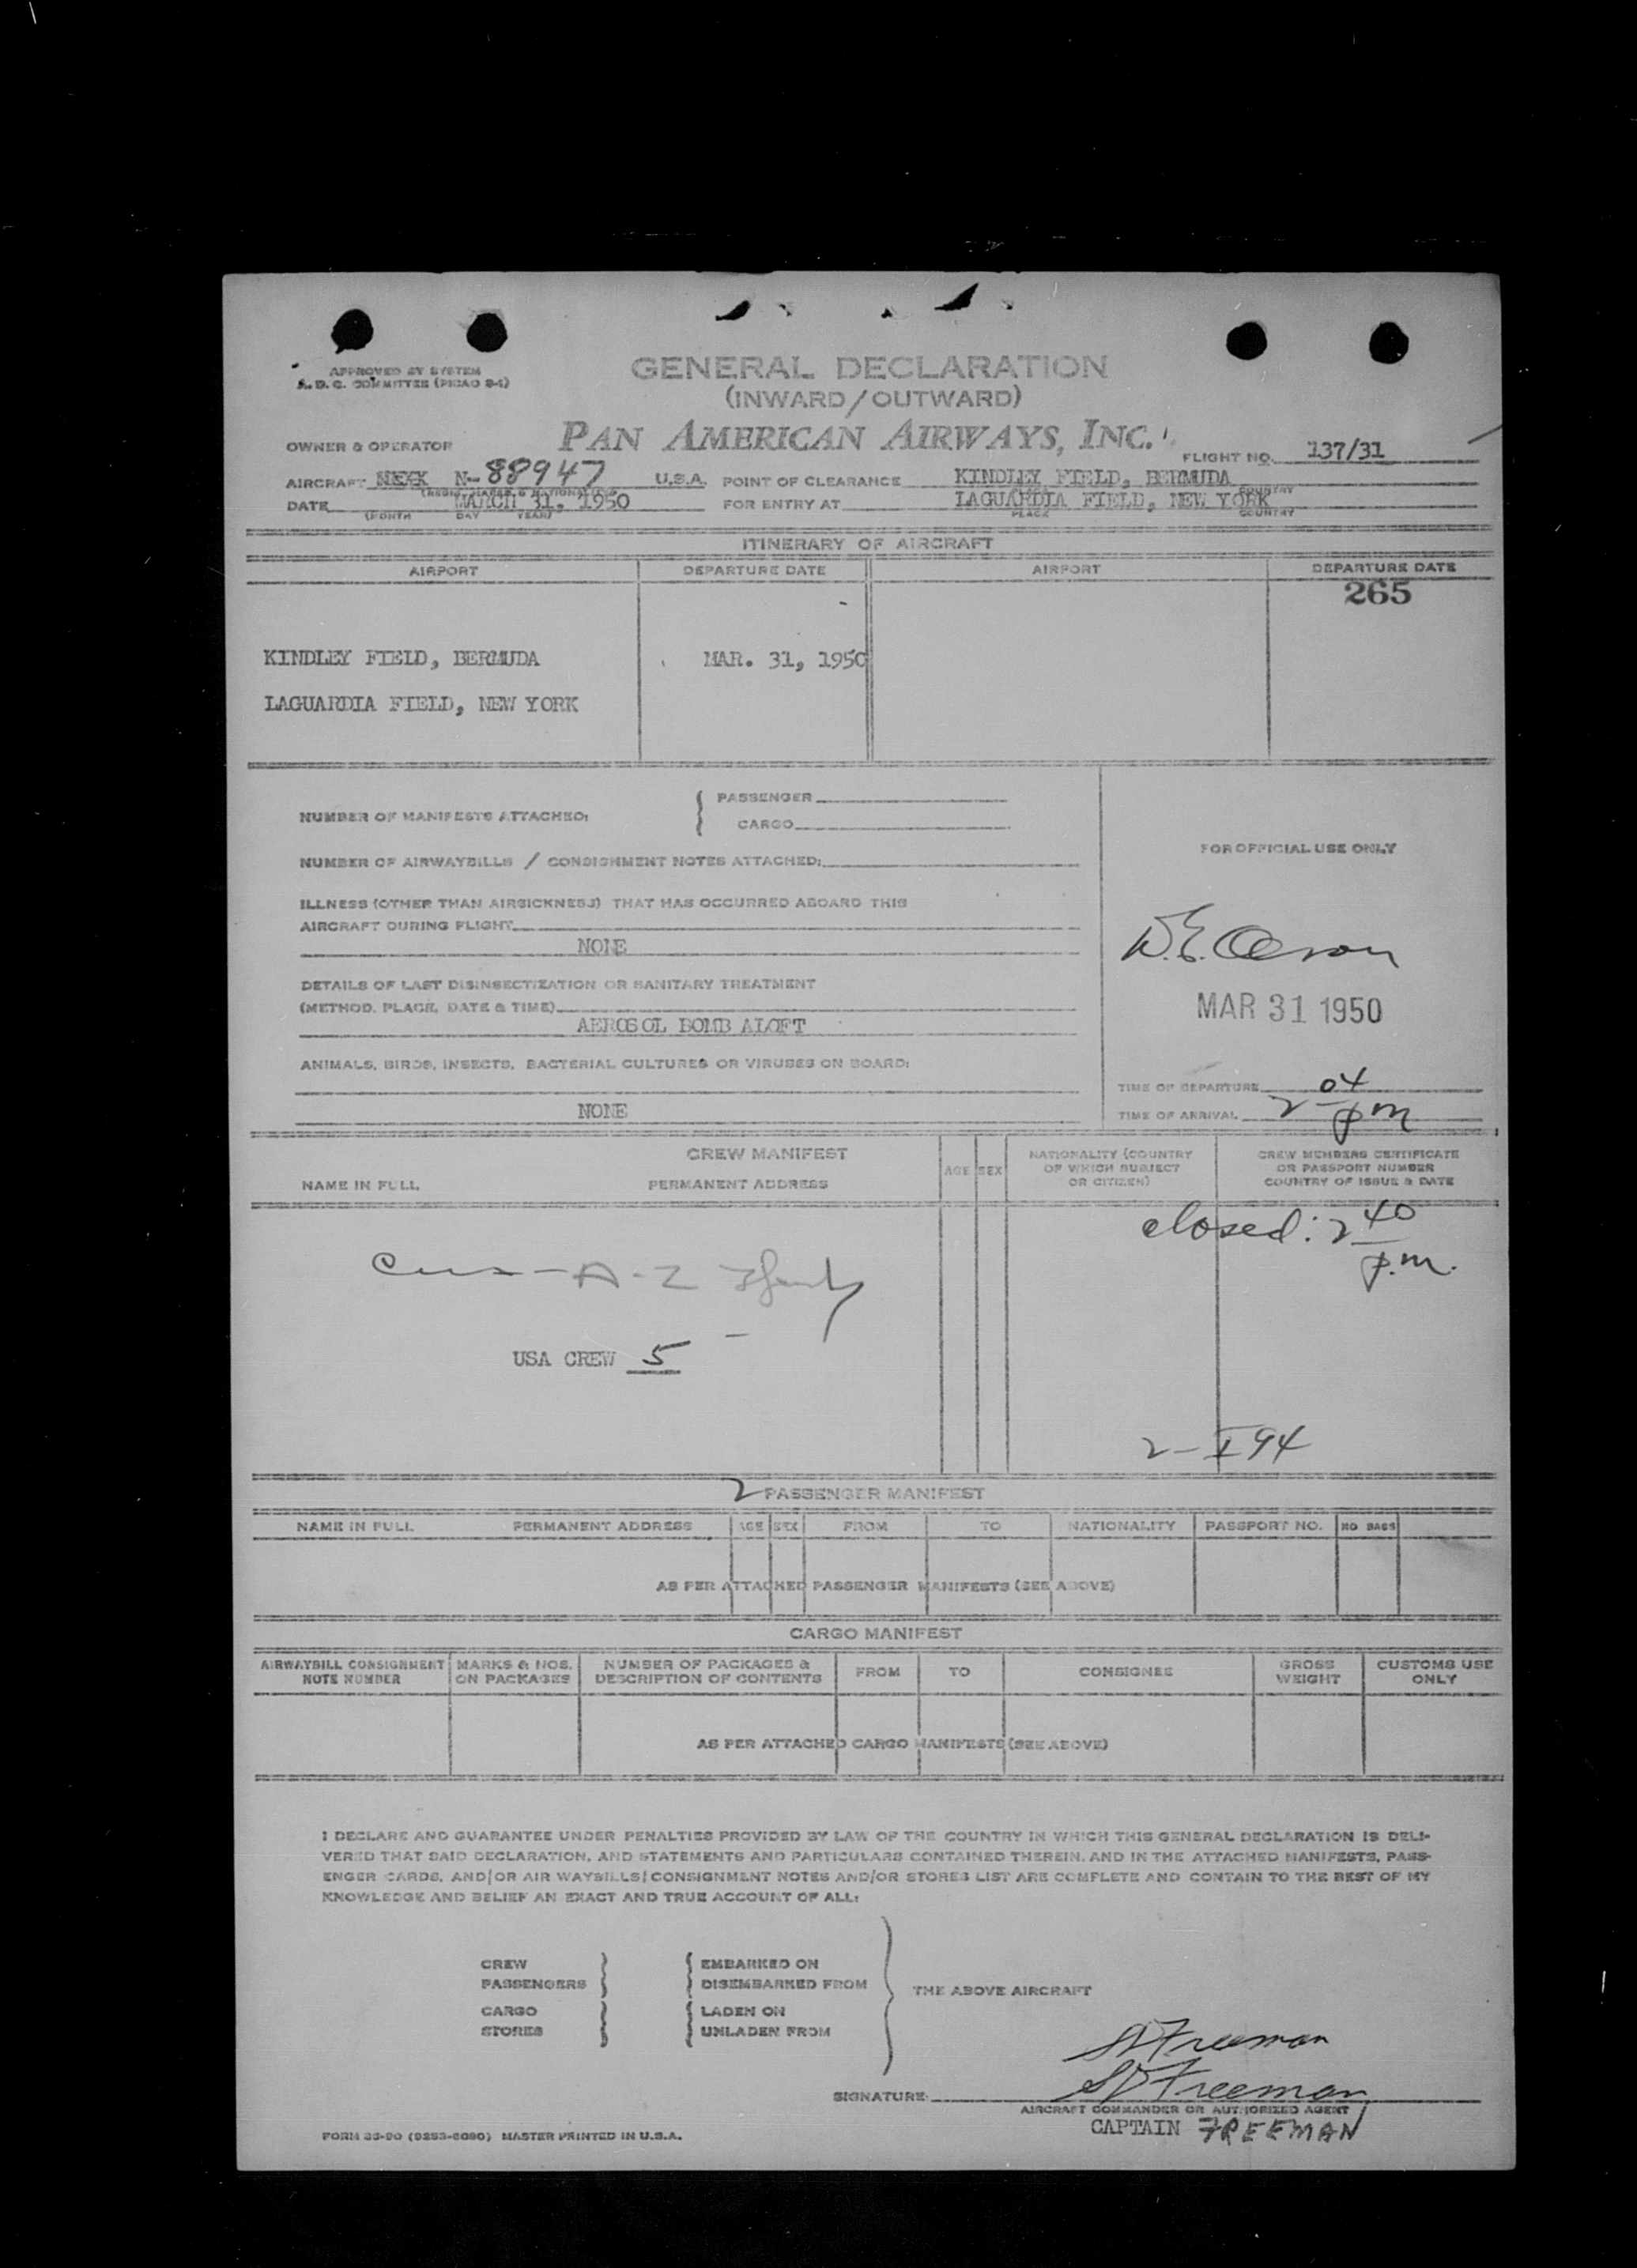 APPROVED BY SYSTEM
A. D. C. COMMITTEE (PICAO 2-1)
GENERAL DECLARATION
(INWARD/OUTWARD)
OWNER & OPERATOR PAN AMERICAN AIRWAYS, INC.
FLIGHT NO. 137/31
AIRCRAFT N-88947 U.S.A. POINT OF CLEARANCE KINDLEY FIELD, BERMUDA
COUNTRY
DATE MARCH 31, 1950 FOR ENTRY AT LAGUARDIA FIELD, NEW YORK
(MONTH DAY YEAR) PLACE COUNTRY
ITINERARY OF AIRCRAFT
AIRPORT DEPARTURE DATE AIRPORT DEPARTURE DATE
265
KINDLEY FIELD, BERMUDA MAR. 31, 1950
LAGUARDIA FIELD, NEW YORK
NUMBER OF MANIFESTS ATTACHED: { PASSENGER
CARGO
NUMBER OF AIRWAYBILLS / CONSIGNMENT NOTES ATTACHED:
FOR OFFICIAL USE ONLY
ILLNESS (OTHER THAN AIRSICKNESS) THAT HAS OCCURRED ABOARD THIS
AIRCRAFT DURING FLIGHT
NONE
DETAILS OF LAST DISINSECTIZATION OR SANITARY TREATMENT
(METHOD, PLACE, DATE & TIME)
AEROSOL BOMB ALOFT
MAR 31 1950
ANIMALS, BIRDS, INSECTS, BACTERIAL CULTURES OR VIRUSES ON BOARD:
NONE
TIME OF DEPARTURE
TIME OF ARRIVAL 2 04 pm
CREW MANIFEST
NAME IN FULL PERMANENT ADDRESS AGE SEX NATIONALITY (COUNTRY OF WHICH SUBJECT OR CITIZEN) CREW MEMBERS CERTIFICATE OR PASSPORT NUMBER COUNTRY OF ISSUE & DATE
closed: 2 40 p.m.
USA CREW 5
2 - I 94
2 PASSENGER MANIFEST
NAME IN FULL PERMANENT ADDRESS AGE SEX FROM TO NATIONALITY PASSPORT NO. NO BAGS
AS PER ATTACHED PASSENGER MANIFESTS (SEE ABOVE)
CARGO MANIFEST
AIRWAYBILL CONSIGNMENT NOTE NUMBER MARKS & NOS. ON PACKAGES NUMBER OF PACKAGES & DESCRIPTION OF CONTENTS FROM TO CONSIGNEE GROSS WEIGHT CUSTOMS USE ONLY
AS PER ATTACHED CARGO MANIFESTS (SEE ABOVE)
I DECLARE AND GUARANTEE UNDER PENALTIES PROVIDED BY LAW OF THE COUNTRY IN WHICH THIS GENERAL DECLARATION IS DELI-
VERED THAT SAID DECLARATION, AND STATEMENTS AND PARTICULARS CONTAINED THEREIN, AND IN THE ATTACHED MANIFESTS, PASS-
ENGER CARDS, AND/OR AIR WAYBILLS/CONSIGNMENT NOTES AND/OR STORES LIST ARE COMPLETE AND CONTAIN TO THE BEST OF MY
KNOWLEDGE AND BELIEF AN EXACT AND TRUE ACCOUNT OF ALL:
CREW EMBARKED ON
PASSENGERS DISEMBARKED FROM
THE ABOVE AIRCRAFT
CARGO LADEN ON
STORES UNLADEN FROM
SD Freeman
SIGNATURE: SD Freeman
AIRCRAFT COMMANDER OR AUTHORIZED AGENT
CAPTAIN FREEMAN
FORM 35-90 MASTER PRINTED IN U.S.A.